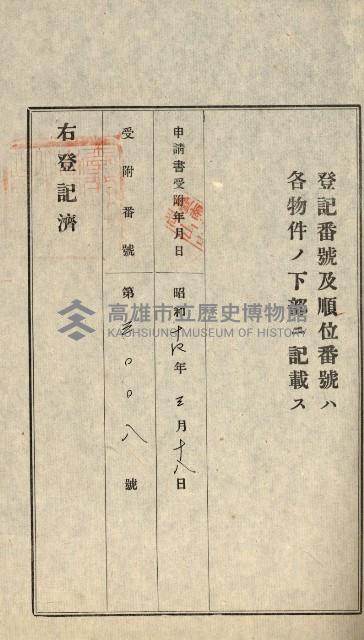 登記番號及順位番號ハ
各物件ノ下部ニ記載ス
申請書受附年月日 昭和十 年三月十八日
受附番號 第三〇〇八號
右登記濟
高雄市立歷史博物館
KAOHSIUNG MUSEUM OF HISTORY